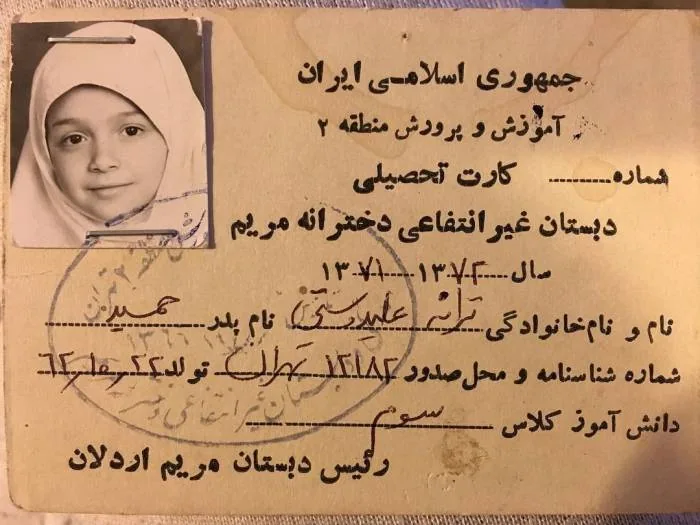 جمهوری اسلامی ایران
آموزش و پرورش منطقه ۲
شماره ........ کارت تحصیلی
دبستان غیر انتفاعی دخترانه مریم
سال ۱۳۷۲ ۱۳۷۱
نام و نام‌خانوادگی ترانه علیدوستی نام پدر حمید
شماره شناسنامه و محل صدور ۱۲۱۸۲ تهران تولد ۶۲
دانش آموز کلاس سوم
رئیس دبستان مریم اردلان